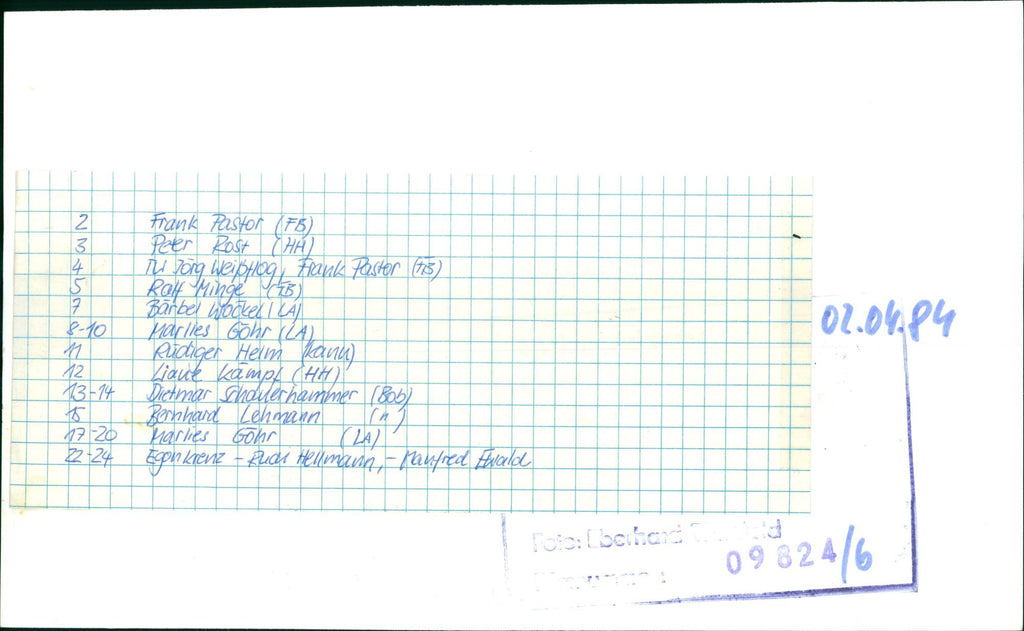 2 Frank Pastor (FB)
3 Peter Rost (HH)
4 Jörg Weißflog, Frank Pastor (FB)
5 Ralf Minge (FB)
7 Bärbel Wöckel (LA)
8-10 Marlies Göhr (LA)
11 Rüdiger Helm (Kanu)
12 Liane Kämpf (HH)
13-14 Dietmar Schauerhammer (Bob)
15 Bernhard Lehmann (")
17-20 Marlies Göhr (LA)
22-24 Egon Krenz - Rudi Hellmann, - Manfred Ewald
02.04.84
Foto: Eberhard
09824/6